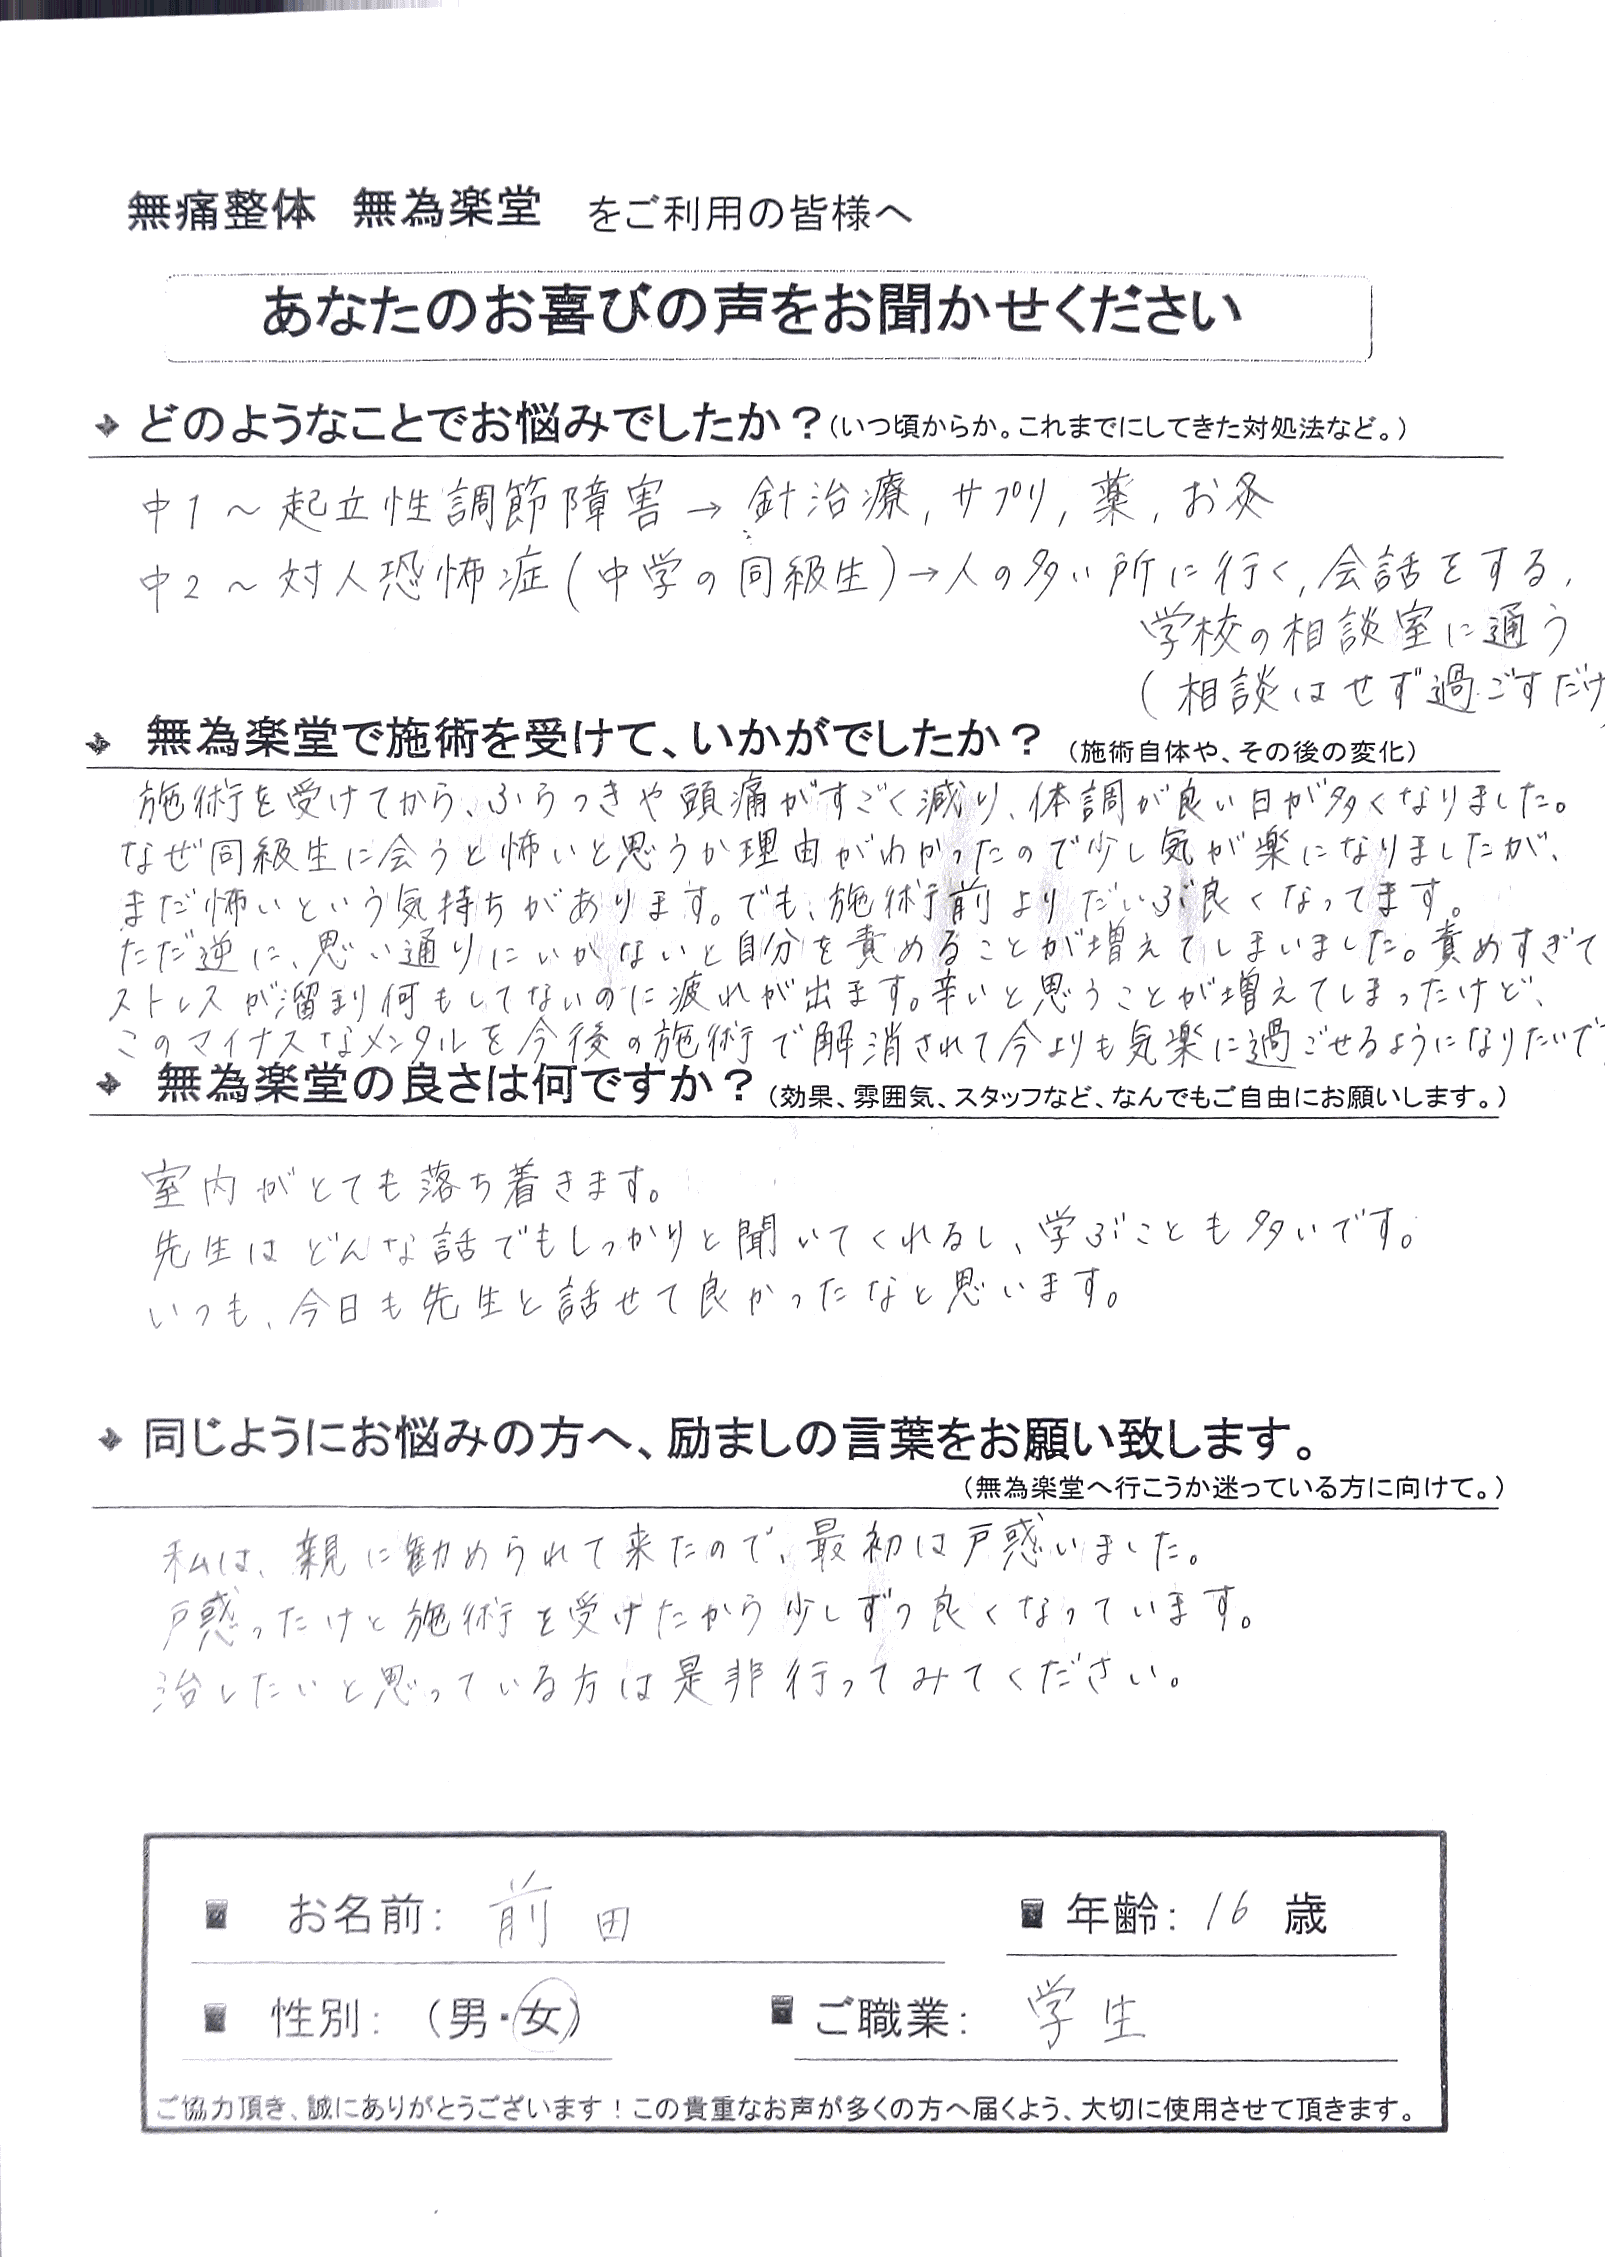 無痛整体 無為楽堂 をご利用の皆様へ
あなたのお喜びの声をお聞かせください
どのようなことでお悩みでしたか？(いつ頃からか。これまでにしてきた対処法など。)
中1～起立性調節障害→針治療,サプリ,薬,お灸
中2～対人恐怖症(中学の同級生)→人の多い所に行く,会話をする,
学校の相談室に通う
(相談はせず過ごすだけ)
無為楽堂で施術を受けて、いかがでしたか？(施術自体や、その後の変化)
施術を受けてから、ふらつきや頭痛がすごく減り、体調が良い日が多くなりました。
なぜ同級生に会うと怖いと思うか理由がわかったので少し気が楽になりましたが、
まだ怖いという気持ちがあります。でも、施術前よりだいぶ良くなってます。
ただ逆に、思い通りにいかないと自分を責めることが増えてしまいました。責めすぎて
ストレスが溜まり何もしてないのに疲れが出ます。辛いと思うことが増えてしまったけど、
このマイナスなメンタルを今後の施術で解消されて今よりも気楽に過ごせるようになりたいで
無為楽堂の良さは何ですか？(効果、雰囲気、スタッフなど、なんでもご自由にお願いします。)
室内がとても落ち着きます。
先生はどんな話でもしっかりと聞いてくれるし、学ぶことも多いです。
いつも、今日も先生と話せて良かったなと思います。
同じようにお悩みの方へ、励ましの言葉をお願い致します。
(無為楽堂へ行こうか迷っている方に向けて。)
私は、親に勧められて来たので、最初は戸惑いました。
戸惑ったけど施術を受けたから少しずつ良くなっています。
治したいと思っている方は是非行ってみてください。
お名前: 前田 年齢: 16 歳
性別: (男・女) ご職業: 学生
ご協力頂き、誠にありがとうございます！この貴重なお声が多くの方へ届くよう、大切に使用させて頂きます。